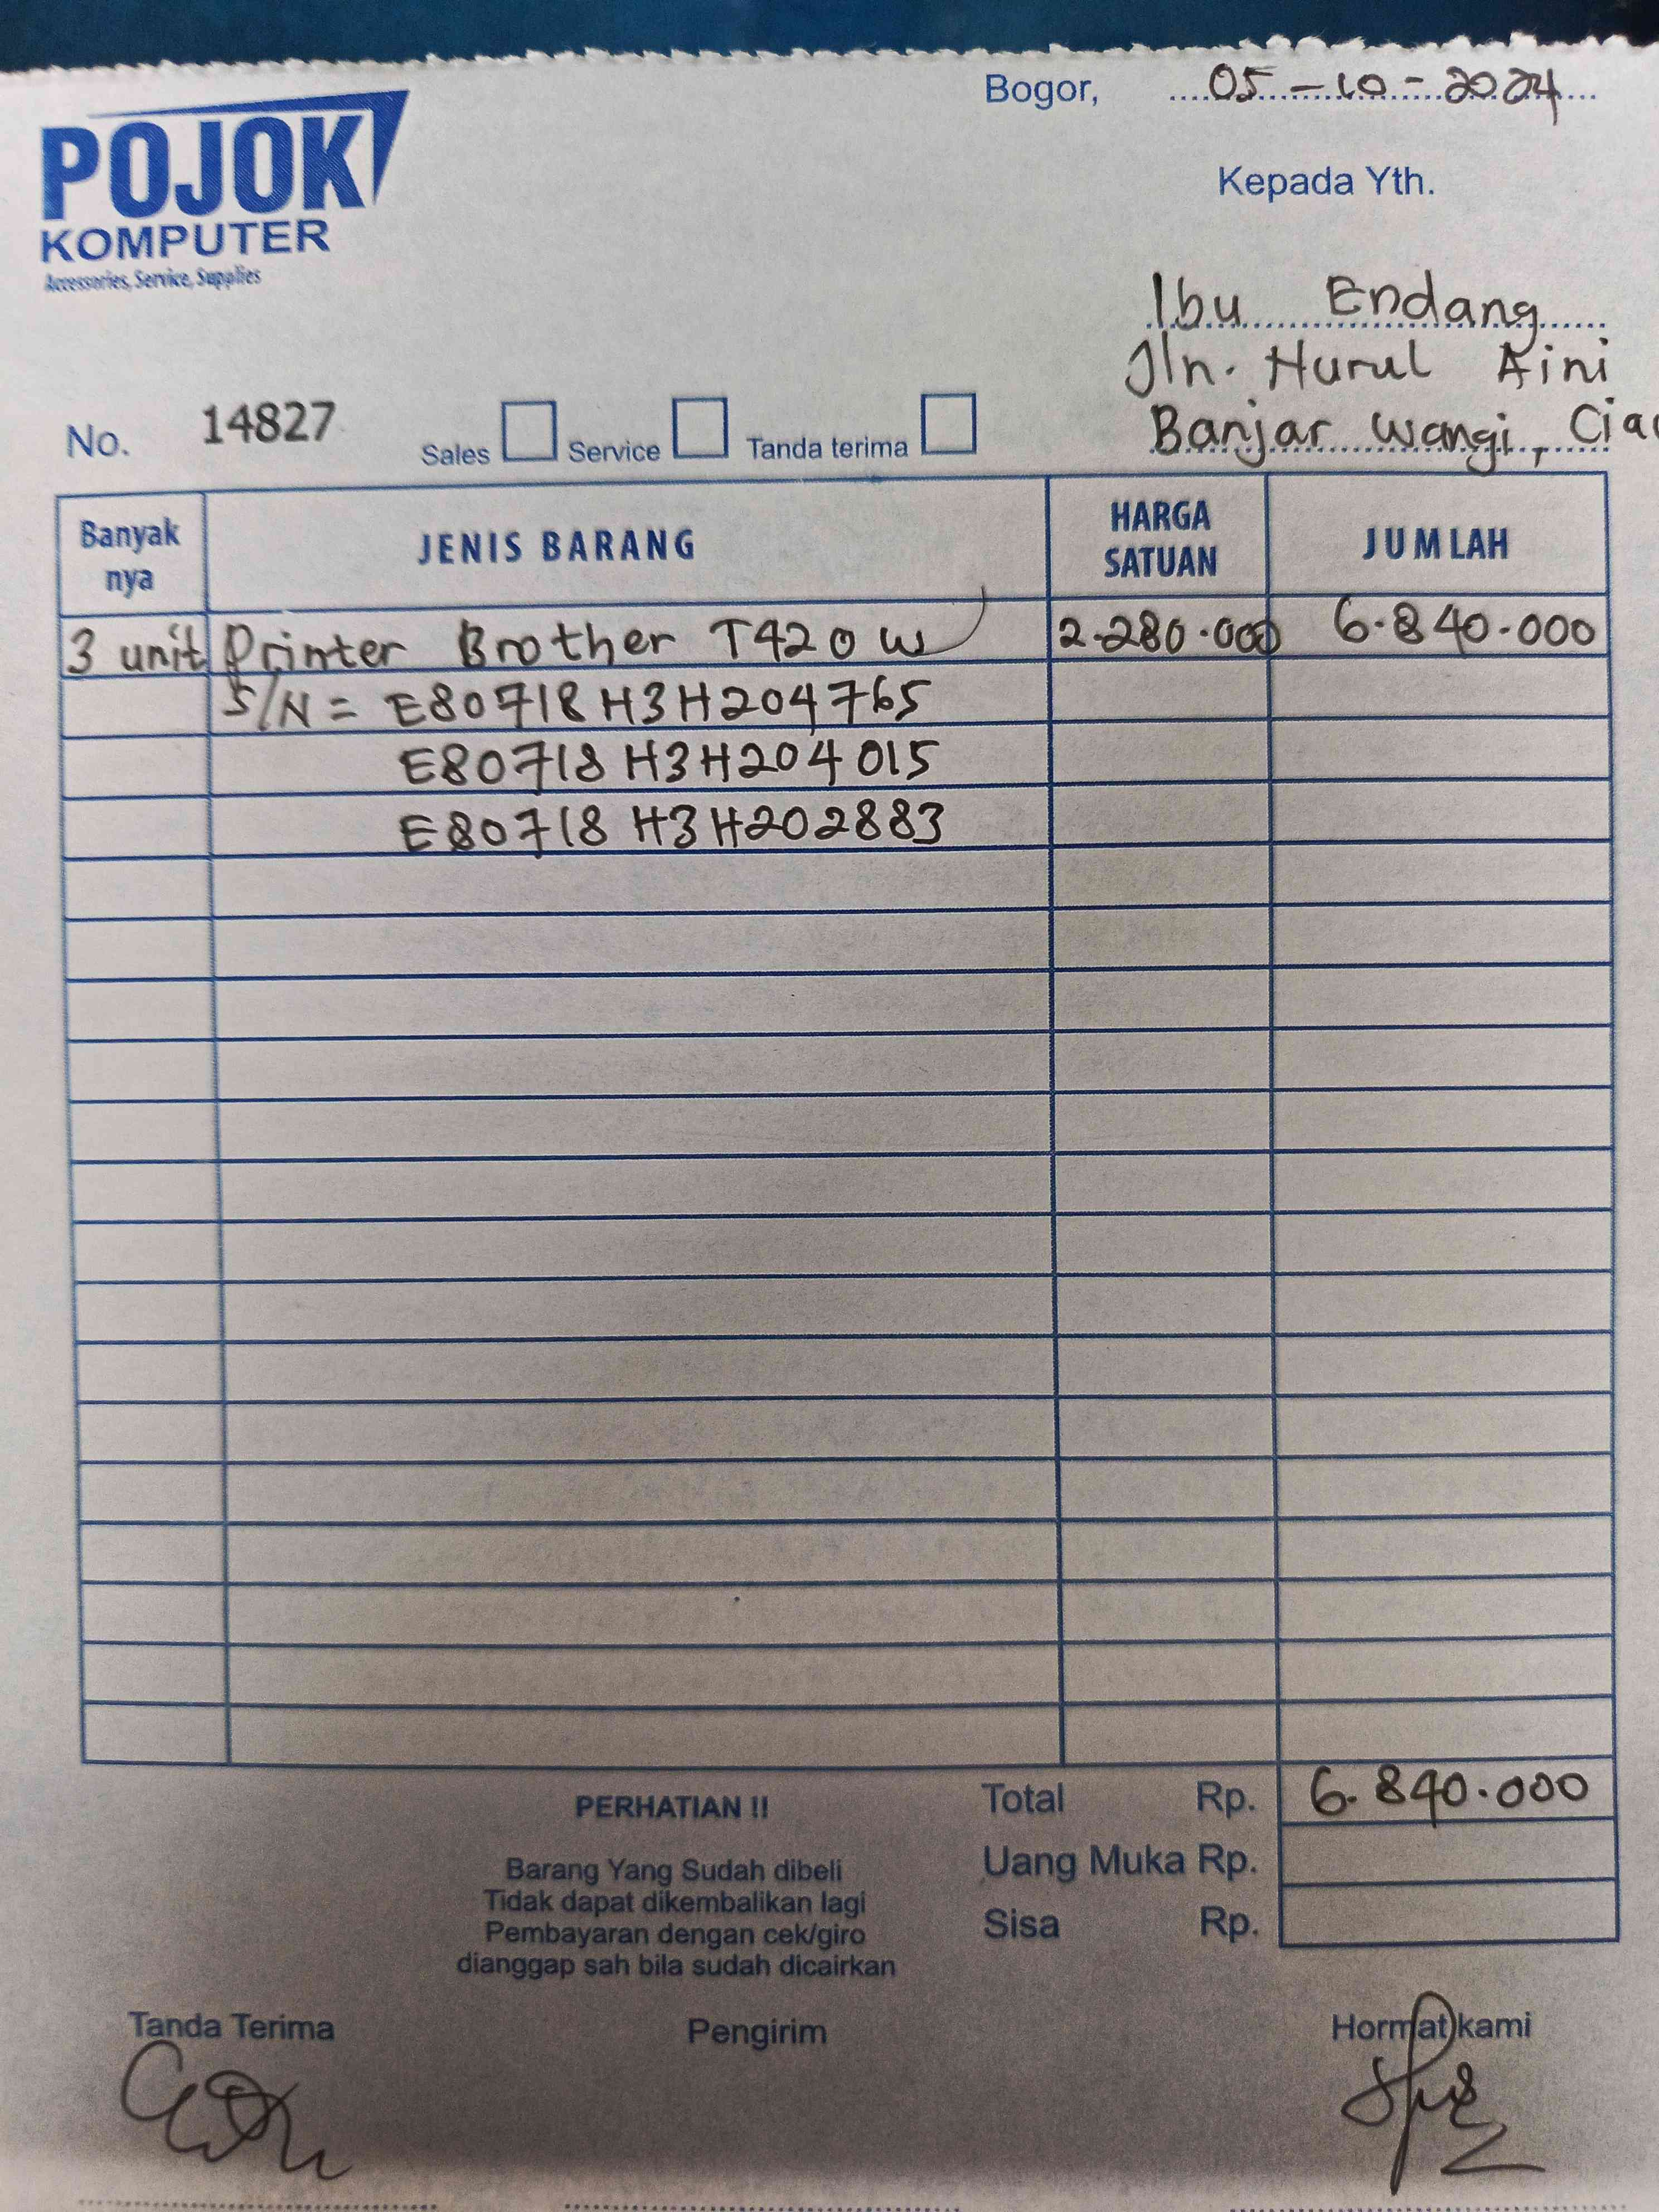 Bogor, 05-10-2024
POJOK
KOMPUTER
Accessories, Service, Supplies
Kepada Yth.
Ibu Endang
Jln. Nurul Aini
Banjar Wangi,
No. 14827 Sales Service Tanda terima
Banyak nya JENIS BARANG HARGA SATUAN JUMLAH
3 unit Printer Brother T420 W 2.280.000 6.840.000
S/N = E80718H3H204765
E80718H3H204015
E80718H3H202883
Total Rp. 6.840.000
Uang Muka Rp.
Sisa Rp.
PERHATIAN !!
Barang Yang Sudah dibeli
Tidak dapat dikembalikan lagi
Pembayaran dengan cek/giro
dianggap sah bila sudah dicairkan
Tanda Terima Pengirim Hormat kami